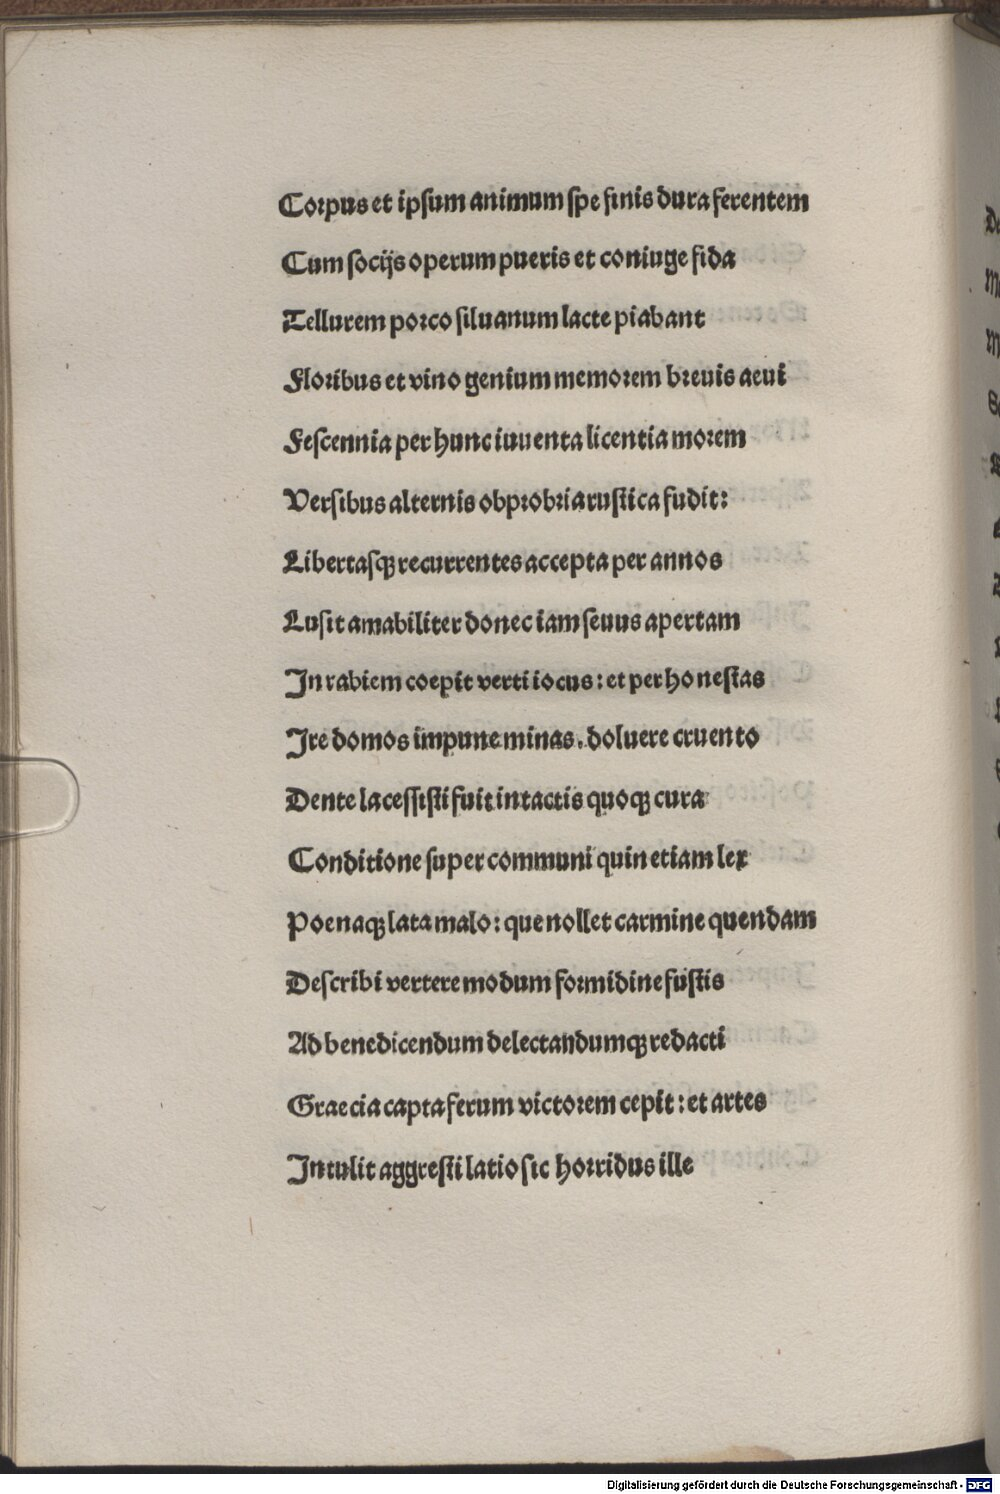 Corpus et ipsum animum spe finis dura ferentem
Cum socijs operum pueris et coniuge fida
Tellurem porco siluanum lacte piabant
Floribus et vino genium memorem breuis aeui
Fescennia per hunc iuuenta licentia morem
Versibus alternis obprobria rustica fudit:
Libertasqꝫ recurrentes accepta per annos
Lusit amabiliter donec iam seuus apertam
In rabiem coepit verti iocus: et per honestas
Ire domos impune minas. doluere cruento
Dente lacessisti fuit intactis quoqꝫ cura
Conditione super communi quin etiam lex
Poenaqꝫ lata malo: que nollet carmine quendam
Describi vertere modum formidine fustis
Ad benedicendum delectandumqꝫ redacti
Graecia capta ferum victorem cepit: et artes
Intulit aggresti latio sic horridus ille
Digitalisierung gefördert durch die Deutsche Forschungsgemeinschaft - DFG